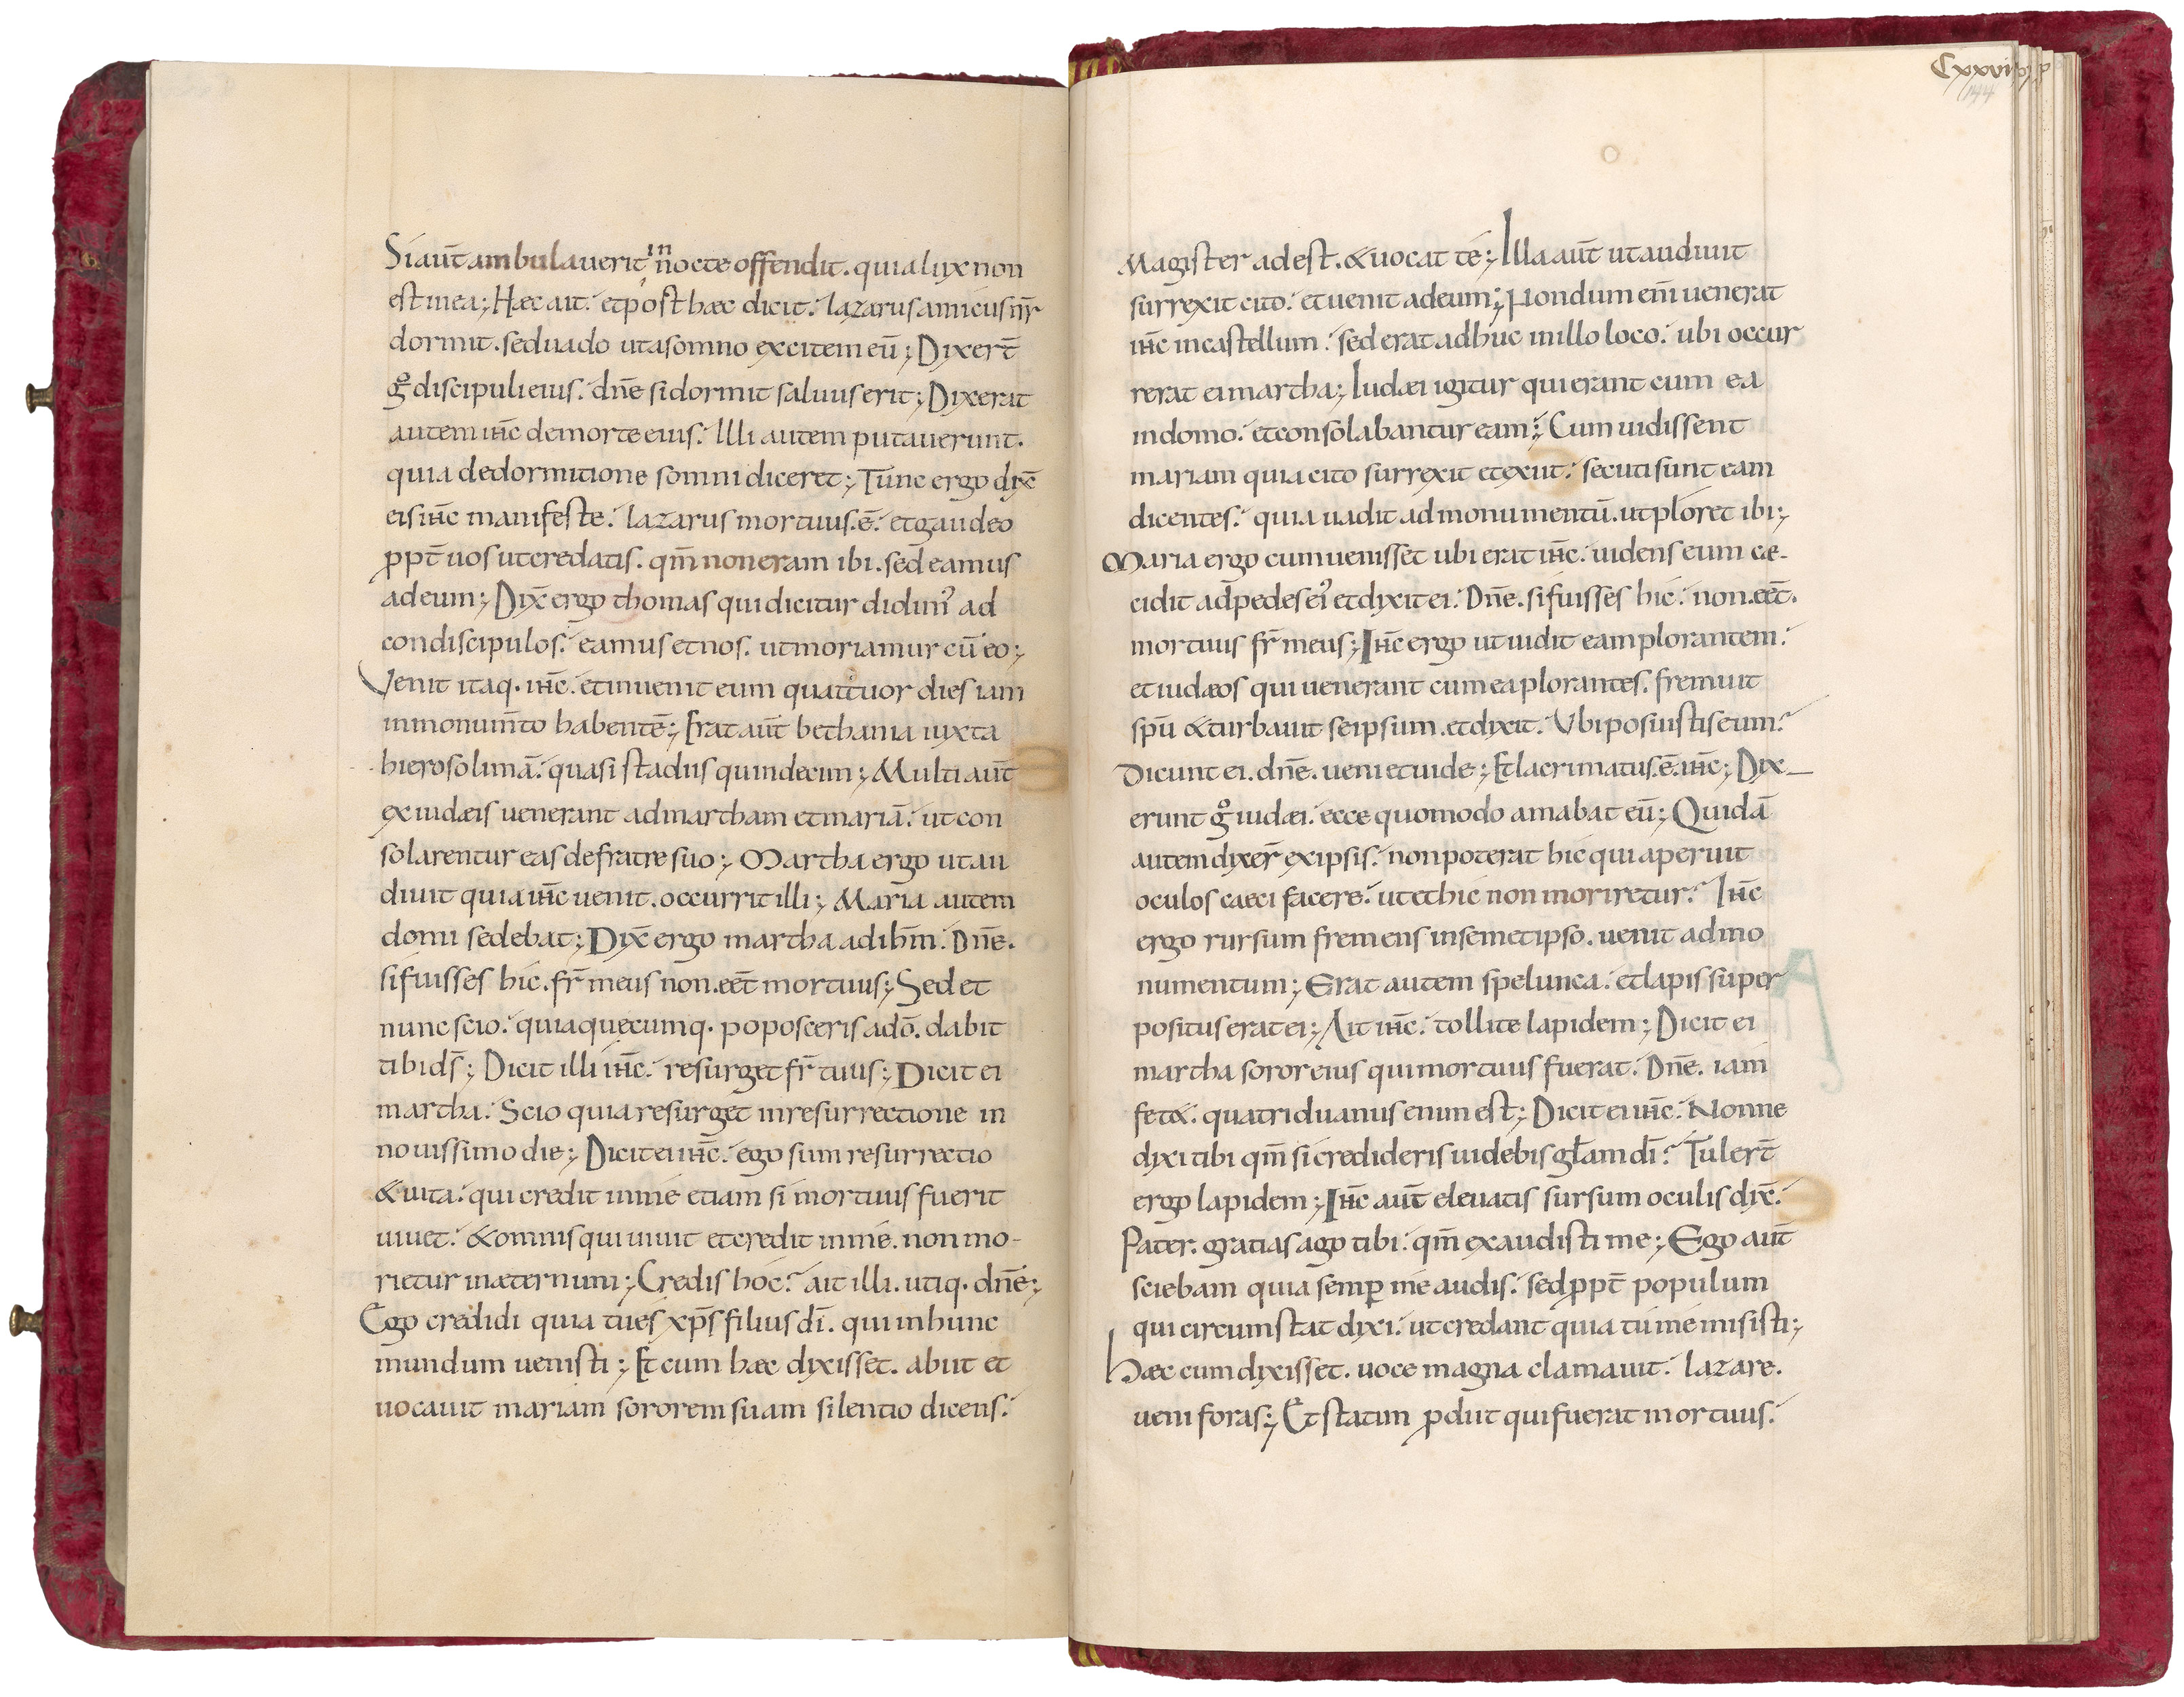 Si aut̄ ambulauerit in nocte offendit. quia lux non
est in ea; Hæc ait. et post hæc dicit. lazarus amicus nr̄
dormit. sed uado ut a somno excitem eū; Dixer̄t
gͦ discipuli eius. dn̄e si dormit saluus erit; Dixerat
autem ih̄c de morte eius. Illi autem putauerunt.
quia de dormitione somni diceret; Tunc ergo dix̄
eis ih̄c manifeste. lazarus mortuus .ē. et gaudeo
ꝓpt̄ uos ut credatis. qm̄ non eram ibi. sed eamus
ad eum; Dix̄ ergo thomas qui dicitur didimꝰ ad
condiscipulos. eamus et nos. ut moriamur cū eo;
Venit itaq. ih̄c. et inuenit eum quattuor dies iam
in monum̄to habentē; Erat aut̄ bethania iuxta
hierosolimā. quasi stadiis quindecim; Multi aut̄
ex iudæis uenerant ad martham et mariā. ut con
solarentur eas de fratre suo; Martha ergo ut au
diuit quia ih̄c uenit. occurrit illi; Maria autem
domi sedebat; Dix̄ ergo martha ad ih̄m. Dn̄e.
si fuisses hic. fr̄ meus non .eēt mortuus; Sed et
nunc scio. quia quęcumq. poposceris a dō. dabit
tibi ds̄; Dicit illi ih̄c. resurget fr̄ tuus; Dicit ei
martha. Scio quia resurget in resurrectione in
nouissimo die; Dicit ei ih̄c. ego sum resurrectio
& uita. qui credit in me etiam si mortuus fuerit
uiuet. & omnis qui uiuit et credit in me. non mo-
rietur in æternum; Credis hoc? ait illi. utiq. dn̄e;
Ego credidi quia tu es xp̄s filius dī. qui in hunc
mundum uenisti; Et cum hæc dixisset. abiit et
uocauit mariam sororem suam silentio dicens.
Cxxvi
144
Magister adest. & uocat te; Illa aut̄ ut audiuit
surrexit cito. et uenit ad eum; Nondum eni̅ uenerat
ih̄c in castellum. sed erat adhuc in illo loco. ubi occur
rerat ei martha; Iudæi igitur qui erant cum ea
in domo. et consolabantur eam; Cum uidissent
mariam quia cito surrexit et exiit. secuti sunt eam
dicentes. quia uadit ad monumentū. ut ploret ibi;
Maria ergo cum uenisset ubi erat ih̄c. uidens eum ce-
cidit ad pedes eiꝰ et dixit ei. Dn̄e. si fuisses hic. non .eēt.
mortuus fr̄ meus; Ih̄c ergo ut uidit eam plorantem.
et iudæos qui uenerant cum ea plorantes. fremuit
spū & turbauit se ipsum. et dixit. Vbi posuistis eum?
Dicunt ei. dn̄e. ueni et uide; Et lacrimatus .ē. ih̄c; Dix-
erunt gͦ iudæi. ecce quomodo amabat eū; Quidā
autem dixer̄ ex ipsis. non poterat hic qui aperuit
oculos caeci facere. ut et hic non moriretur? Ih̄c
ergo rursum fremens in semetipso. uenit ad mo
numentum; Erat autem spelunca. et lapis super
positus erat ei; Ait ih̄c. tollite lapidem; Dicit ei
martha soror eius qui mortuus fuerat. Dn̄e. iam
fet&. quatriduanus enim est; Dicit ei ih̄c. Nonne
dixi tibi qm̄ si credideris uidebis gl̄am dī? Tuler̄t
ergo lapidem; Ih̄c aut̄ eleuatis sursum oculis dix̄.
Pater. gratias ago tibi. qm̄ exaudisti me; Ego aut̄
sciebam quia semꝑ me audis. sed ꝓpt̄ populum
qui circumstat dixi. ut credant quia tu me misisti;
Hæc cum dixisset. uoce magna clamauit. lazare.
ueni foras; Et statim ꝓdiit qui fuerat mortuus.